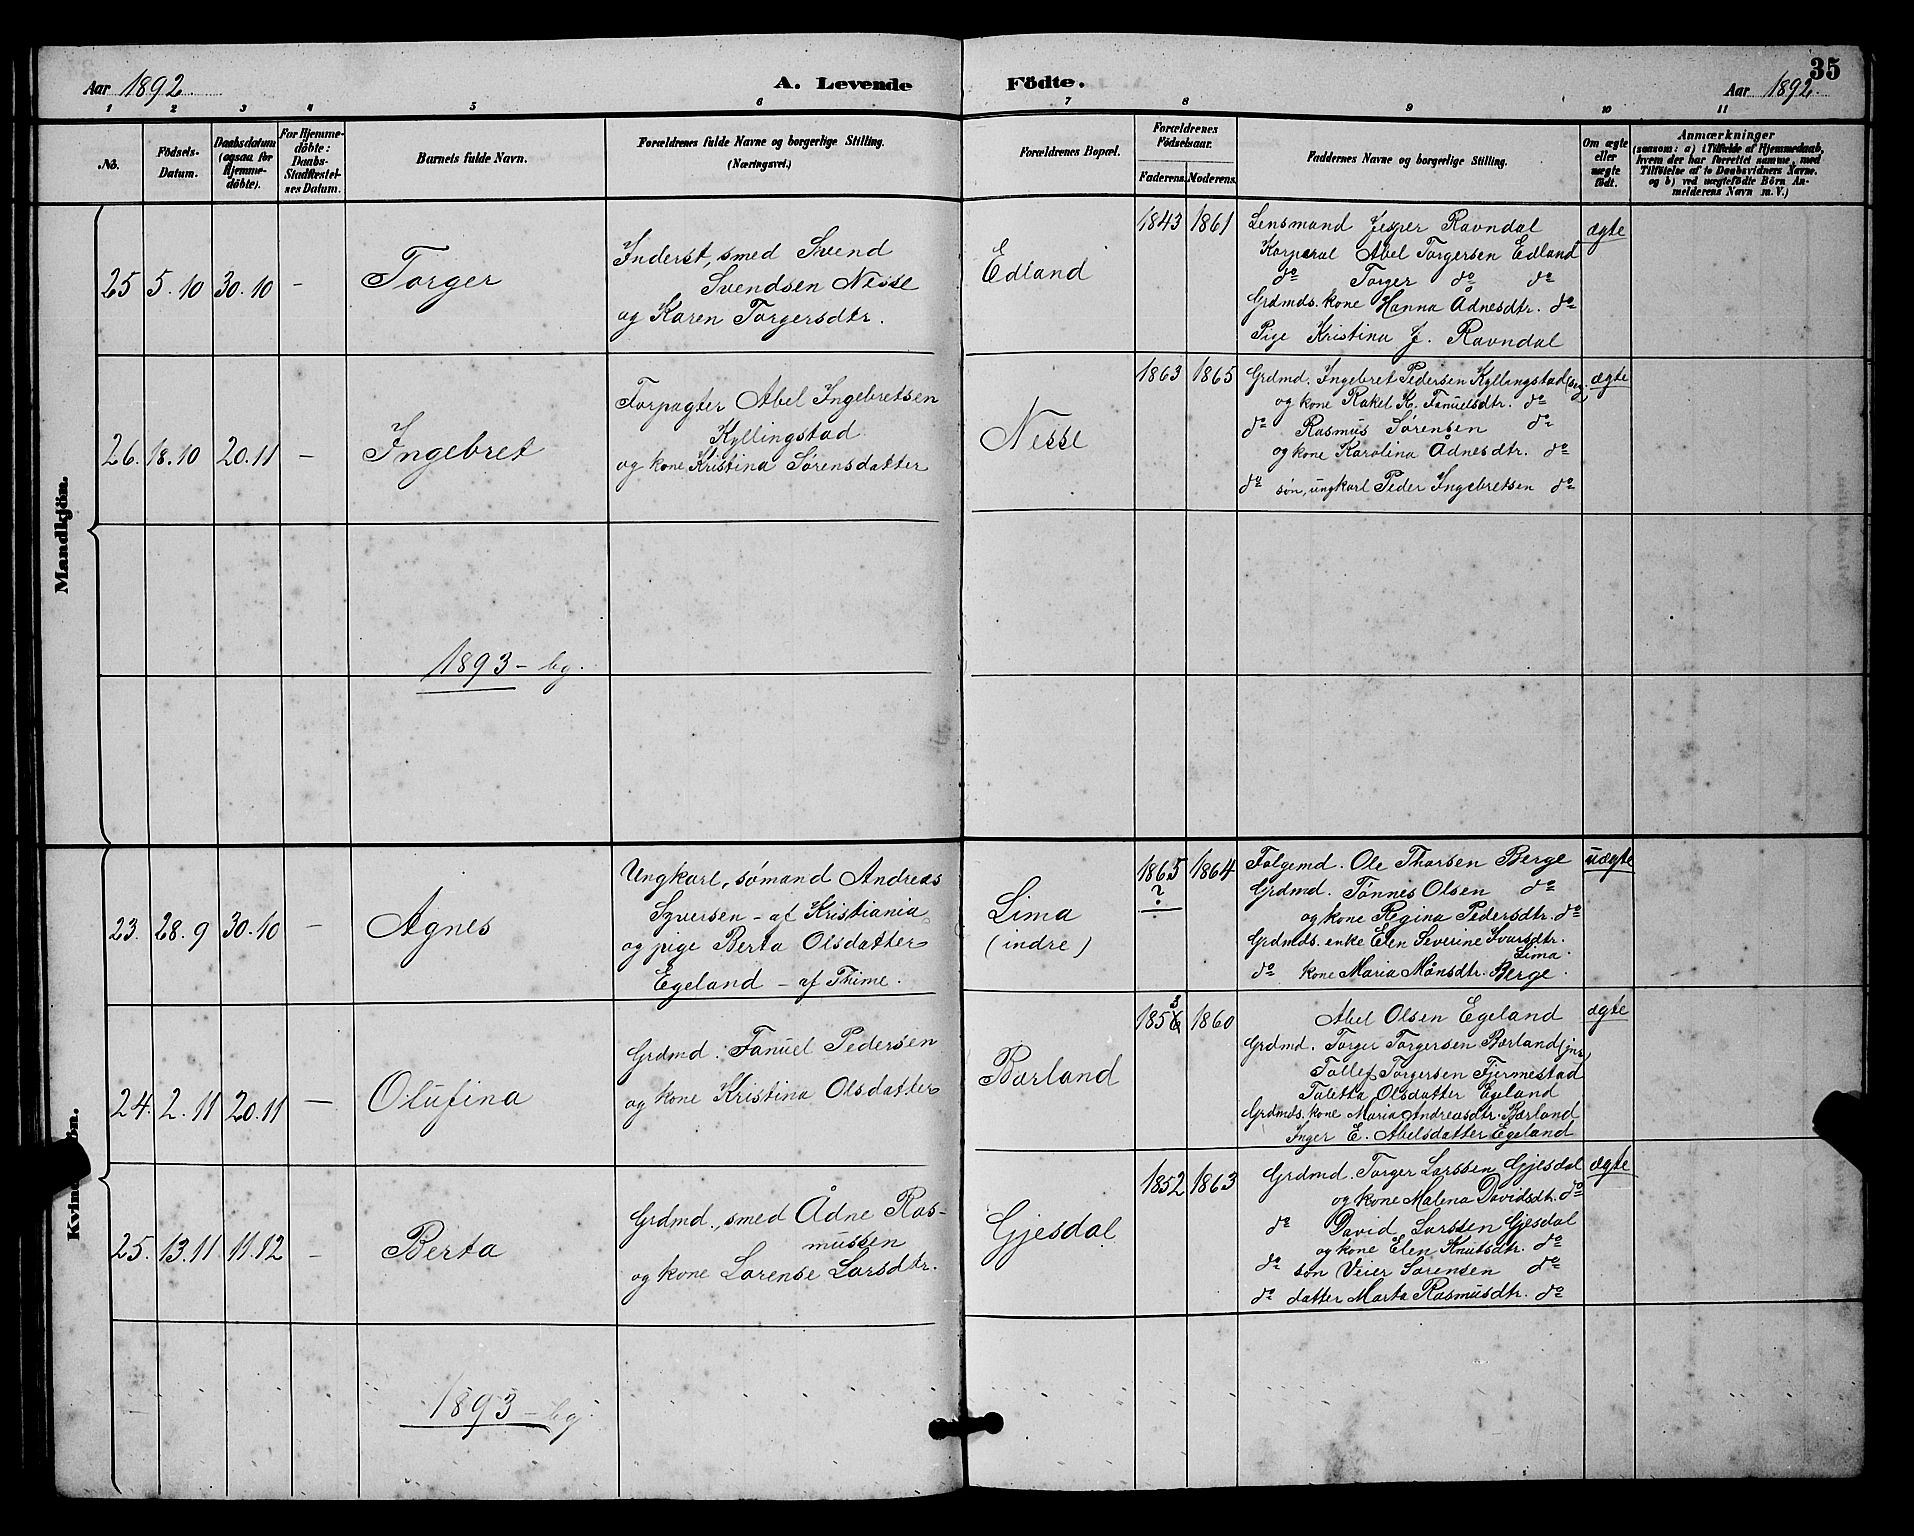 35
Aar 1892
A. Levende Födte.
Aar 1892.
1 2 3 4 5 6 7 8 9 10 11
No.
Födsels-Datum.
Daabsdatum (ogsaa for Hjemme-döbte).
For Hjemme-döbte: Daabs-Stadfæstel-nes Datum.
Barnets fulde Navn.
Forældrenes fulde Navne og borgerlige Stilling. (Næringsvei.)
Forældrenes Bopæl.
Forældrenes Födselsaar.
Faderens. Moderens.
Faddernes Navne og borgerlige Stilling.
Om ægte eller uægte födt.
Anmærkninger
(saasom: a) i Tilfælde af Hjemmedaab, hvem der har forrettet samme, med Tilföielse af to Daabsvidners Navne. og b) ved uægtefödte Börn An-melderens Navn m. V.)
Mandkjön.
25 5.10 30.10 – Torger
Inderst, smed Svend
Svendsen Nesse
og Karen Torgersdtr.
Edland
1843 1861
Lensmand Jesper Ravndal
Korporal Abel Torgersen Edland
do Torger do do
Grdmds. kone Hanna Ådnesdtr. do
Pige Kristina J. Ravndal
ægte
26. 18.10 20.11 – Ingebret
Forpagter Abel Ingebretsen
Kyllingstad
og kone Kristina Sørensdatter
Nesse
1863 1865
Grdmd. Ingebret Pedersen Kyllingstad
og kone Rakel K. Fanuelsdtr. do
do Rasmus Sørensen do
og kone Karolina Ådnesdtr. do
do søn, ungkarl Peder Ingebretsen do
ægte
1893 – bg.
Kvindekjön.
23. 28.9 30.10 – Agnes
Ungkarl, sømand Andreas
Syversen – af Kristiania
og pige Berta Olsdatter
Egeland – af Thime.
Lima
(indre)
1865 1864
?
Folgemd. Ole Thorsen Berge
Grdmd. Tønnes Olsen do
og kone Regina Pedersdtr. do
Grdmds. enke Elen Severine Ivarsdtr.
Lima.
do kone Maria Månsdtr. Berge.
uægte
24. 2.11 20.11 – Olufina
Grdmd. Fanuel Pedersen
og kone Kristina Olsdatter
Bærland
3
1856 1860
Abel Olsen Egeland
Grdmd. Torger Torgersen Bærland
Tollef Torgersen Fjermestad
Taletta Olsdatter Egeland
Grdmds. kone Maria Andreasdtr. Bærland
Inger E. Abelsdatter Egeland
ægte
25. 13.11 11.12 – Berta
Grdmd., smed Ådne Ras-
mussen
og kone Lorense Larsdtr.
Gjesdal
1852 1863
Grdmd. Torger Larssen Gjesdal
og kone Malena Davidsdt. do
do David Larssen Gjesdal
og kone Elen Knutsdtr. do
do søn Veier Sørensen do
do datter Marta Rasmusdtr. do
ægte
1893 – bg.